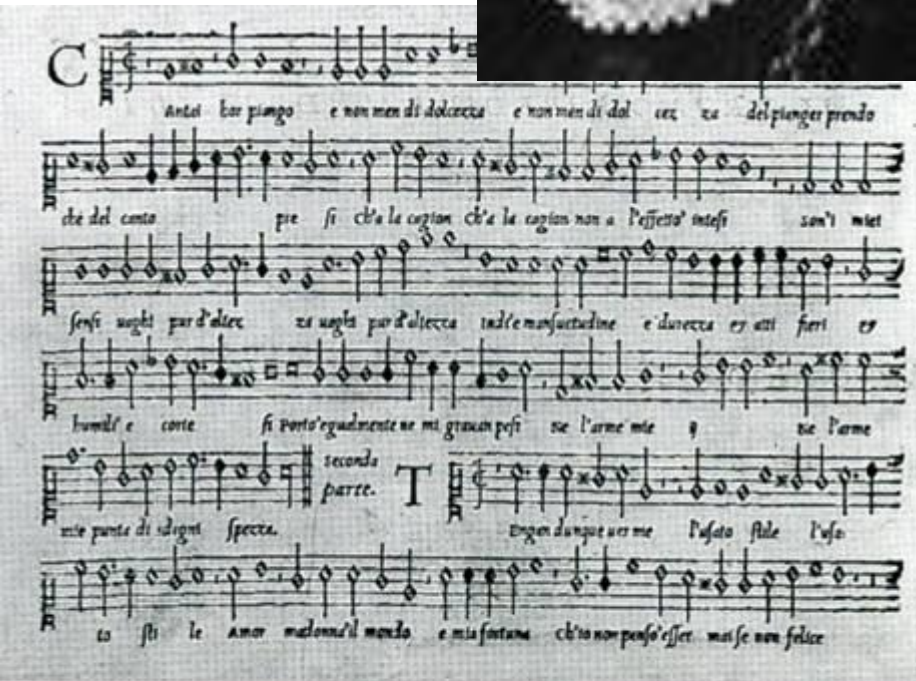 C Antai hor piango e non men di dolcezza e non men di dol cez za del pianger prendo
che del canto pre si ch'a la cagion ch'a la cagion non a l'effetto' intesi son'i miei
sensi uaghi pur d'altez za uaghi pur d'altezza indi'e mansuetudine e durezza et atti fieri et
humili' e corte si Porto'egualmente ne mi grauan pesi ne l'arme mie ne l'arme
mie punta di sdegni spezza. seconda parte. T Engan dunque uer me l'usato stile l'usa
to sti le Amor madonna'il mondo e mia fortuna ch'io non penso'esser mai se non felice